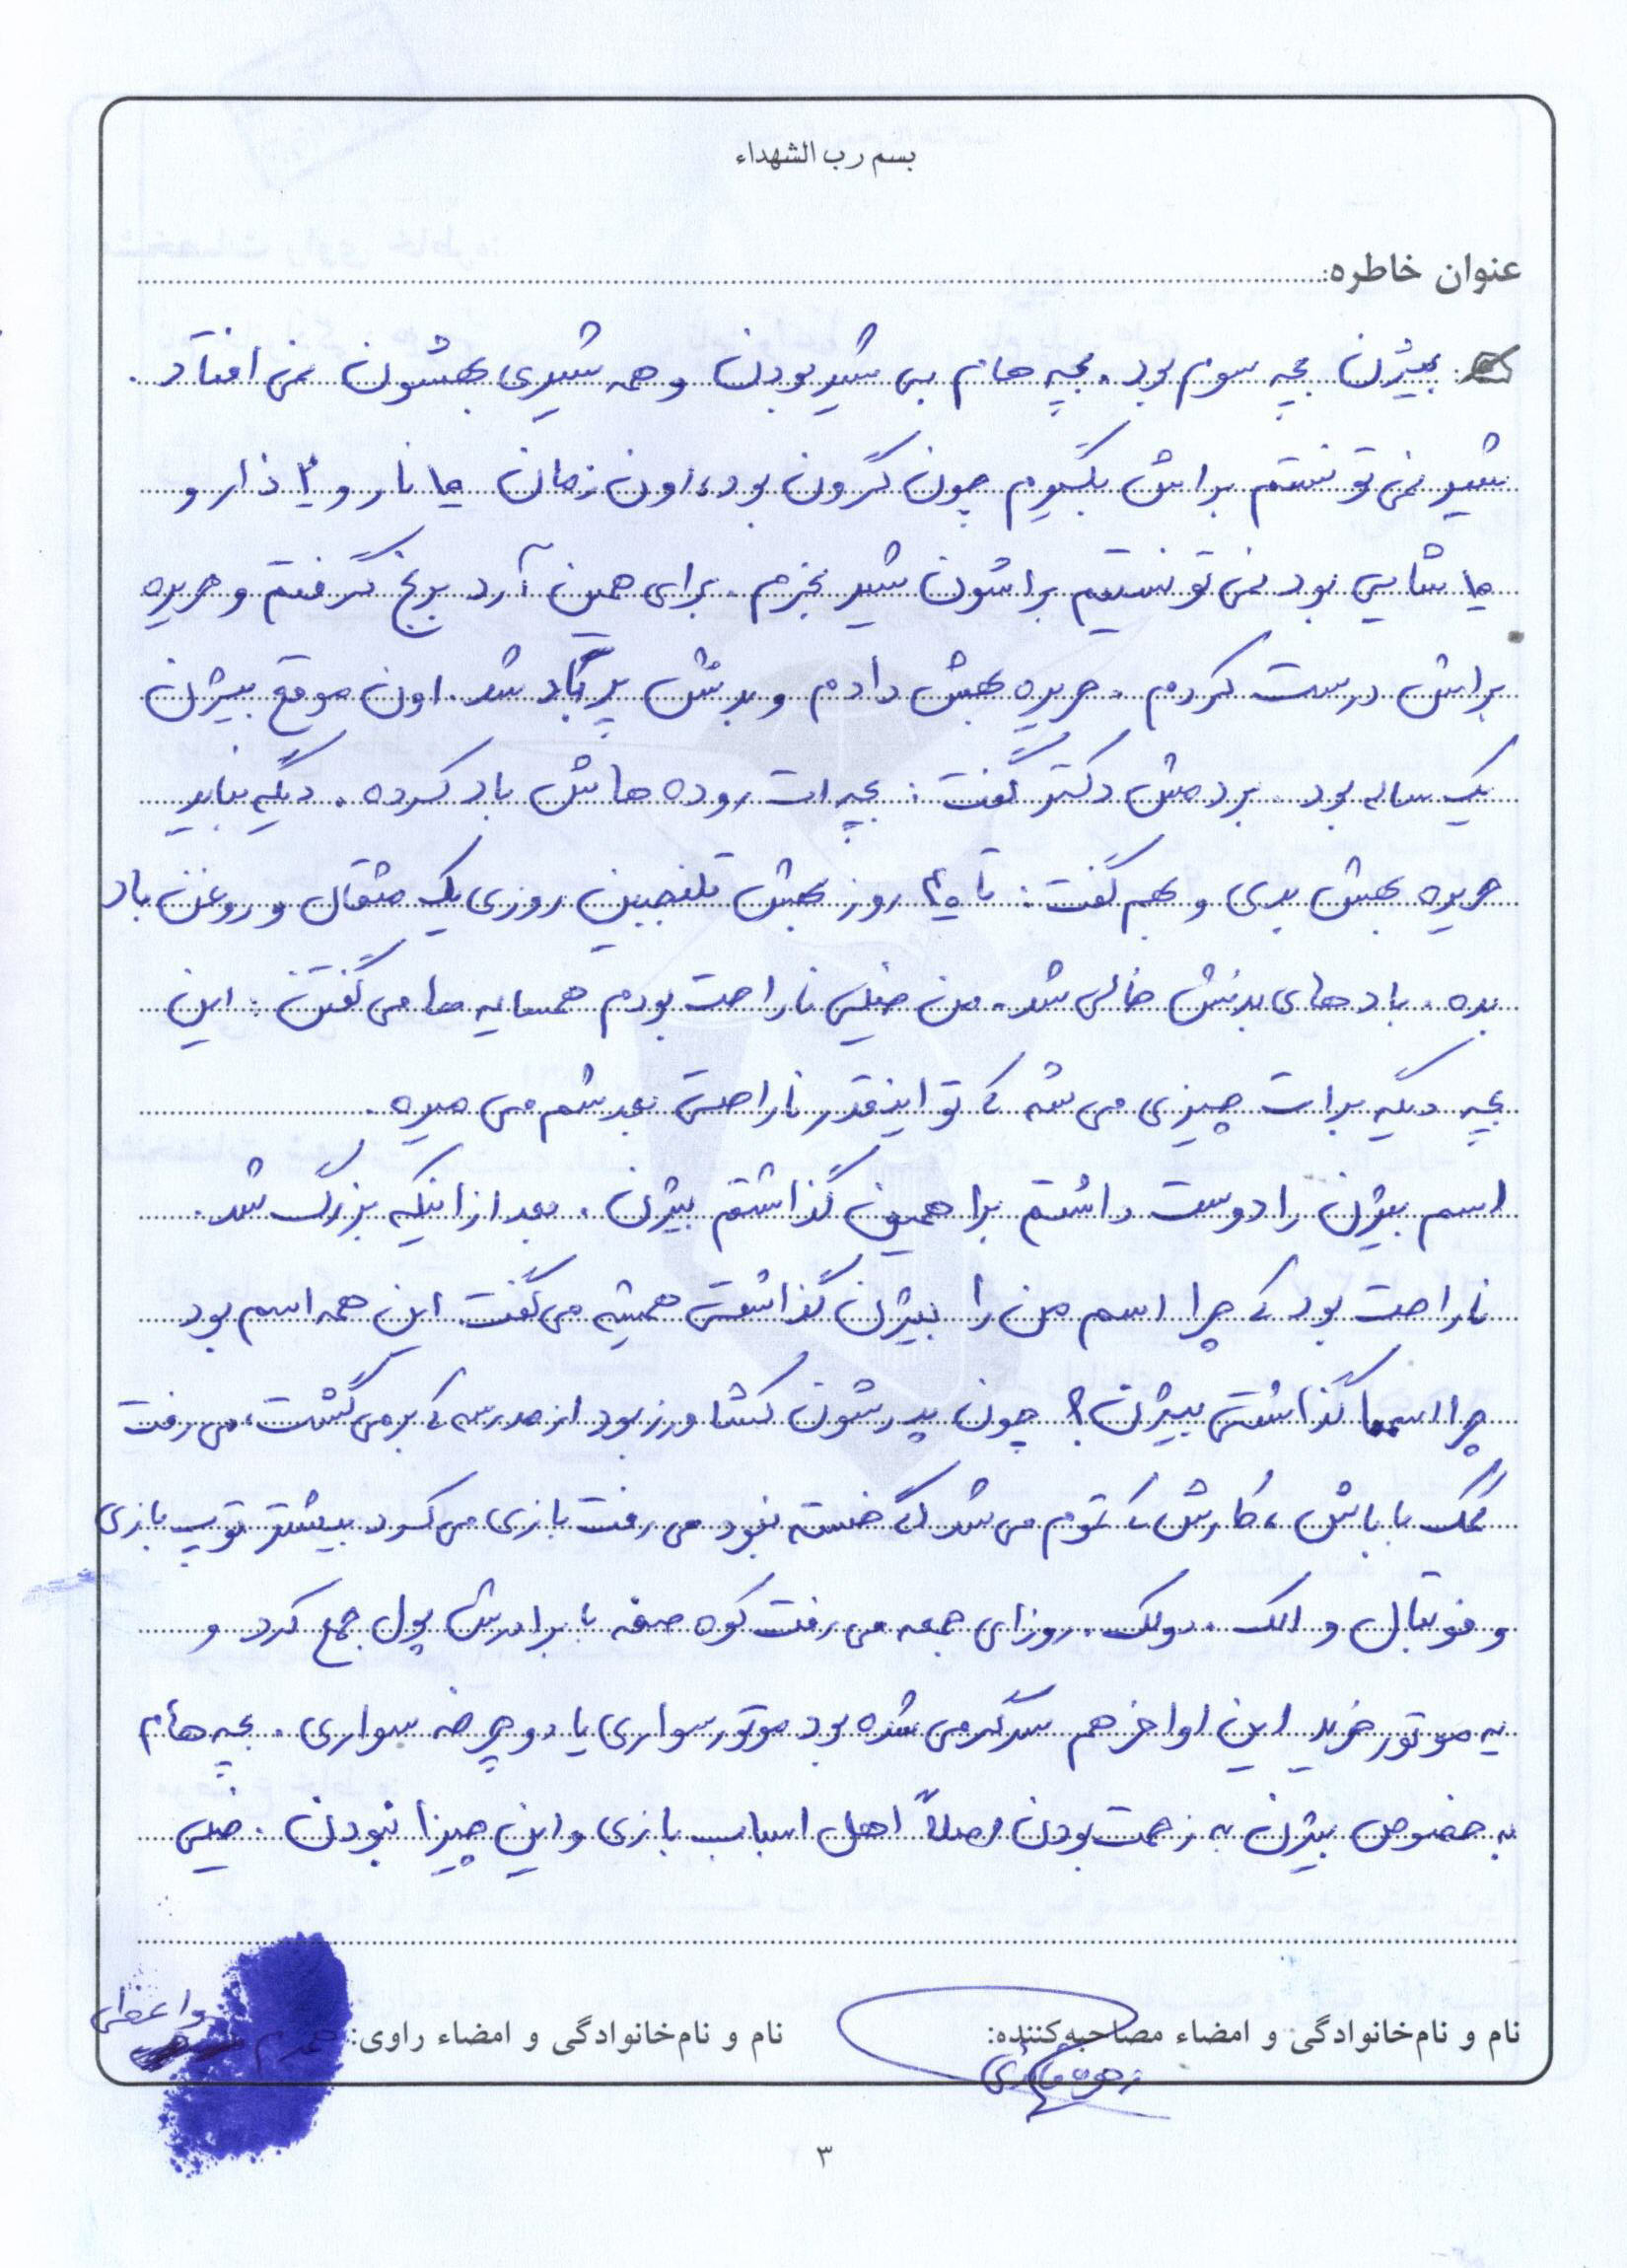 بسم رب الشهداء
عنوان خاطره:
بیژن بچه سوم بود. بچه هام بی شیر بودن و همه شیری بهشون نمی افتاد.
شیر نمی تونستم براش بگیرم چون گرون بود، اون زمان و
بود نمی تونستیم براشون شیر بخرم. برای همین آرد برنج گرفتم و حریره
براش درست کردم. حریره بهش دادم و بدنش پر باد شد. اون موقع بیژن
یک ساله بود. بردمش دکتر گفت: بچه ات روده هاش باد کرده. دیگه نباید
حریره بهش بدی و بهم گفت: تا روز بهش روزی یک مثقال و روغن باد
بده. بادهای بدنش خالی شد. من خیلی ناراحت بودم همسایه ها می گفتن: این
بچه دیگه برات چیزی می شه که تو اینقدر ناراحتی بعدشم می میره.
اسم بیژن را دوست داشتم برا همین گذاشتم بیژن. بعد از اینکه بزرگ شد.
ناراحت بود که چرا اسم من را بیژن گذاشتی همیشه می گفت. این همه اسم بود
چرا اسمما گذاشتی بیژن؟ چون پدرشون کشاورز بود از مدرسه که برمی گشت، می رفت
کمک باباش، کارش که تموم می شد اگه خسته نبود می رفت بازی می کرد بیشتر توپ بازی
و فوتبال و الک دولک. روزای جمعه می رفت کوه صفه با برادرش پول جمع کرد و
یه موتور خرید این اواخر هم سرگرمی شده بود موتور سواری یا دوچرخه سواری. بچه هام
به خصوص بیژن به زحمت بودن اصلاً اهل اسباب بازی و این چیزا نبودن. خیلی
نام و نام‌خانوادگی و امضاء مصاحبه‌کننده: زهره
نام و نام‌خانوادگی و امضاء راوی: واعظی
۳